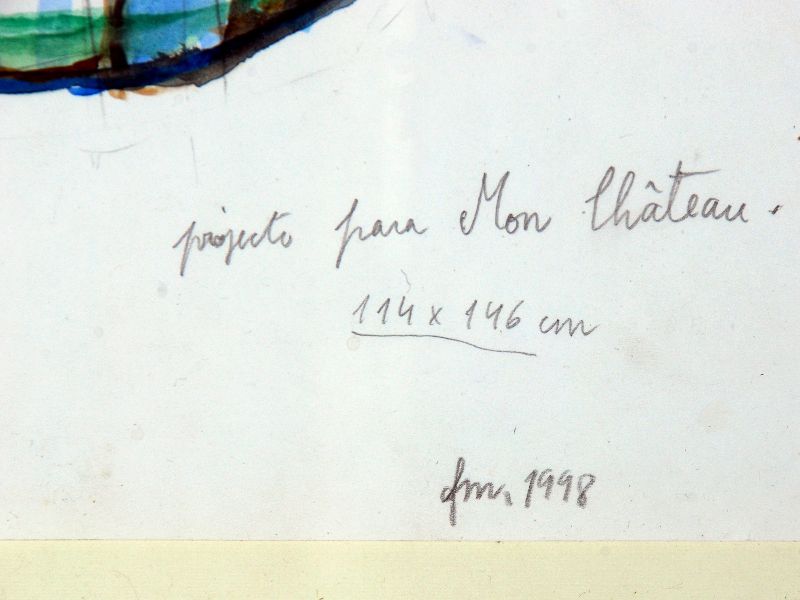 projecto para Mon Château.
114 x 146 cm
fm. 1998